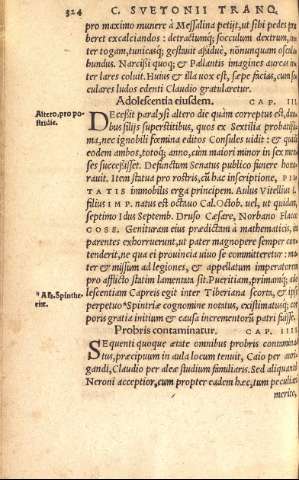 324 C. SVETONII TRANQ.
pro maximo munere à Messalina petijt, ut sibi pedes præ
beret excalciandos: detractumq; socculum dextrum, in-
ter togam, tunicasq; gestauit aßiduè, nonnunquam oscula
bundus. Narcißi quoq; & Pallantis imagines aureas in-
ter lares coluit. Huius & illa uox est, sæpe facias, cum se
culares ludos edenti Claudio gratularetur.
Adolescentia eiusdem. CAP. III.
Altero, pro po-
stridie.
DEceßit paralysi altero die quàm correptus est, duo
bus filijs superstitibus, quos ex Sextilia probatißi
ma, nec ignobili fœmina editos Consules uidit: & qui
eodem ambos, totoq; anno, cùm maiori minor in sex men
ses succeßisset. Defunctum Senatus publico funere hono
rauit. Item statua pro rostris, cũ hac inscriptione, PIE
TATIS immobilis erga principem. Aulus Vitellius L.
filius IMP. natus est octauo Cal. Octob. uel, ut quidam,
septimo Idus Septemb. Druso Cæsare, Norbano Flacco
COSS. Genituram eius prædictam à mathematicis, ita
parentes exhorruerunt, ut pater magnopere semper con
tenderit, ne qua ei prouincia uiuo se committeretur: ma
ter & missum ad legiones, & appellatum imperatorem
pro afflicto statim lamentata sit. Pueritiam, primamq; ado
lescentiam Capreis egit inter Tiberiana scorta, & ipse
a Al. Spinthe-
riæ.
perpetuo a Spintriæ cognomine notatus, existimatusq; cor
poris gratia initium & causa incrementorũ patri fuisse.
Probris contaminatur. CAP. IIII.
SEquenti quoque ætate omnibus probris contamina-
tus, præcipuum in aula locum tenuit, Caio per auri
gandi, Claudio per aleæ studium familiaris. Sed aliquanto
Neroni acceptior, cum propter eadem hæc, tum peculiari
merito,